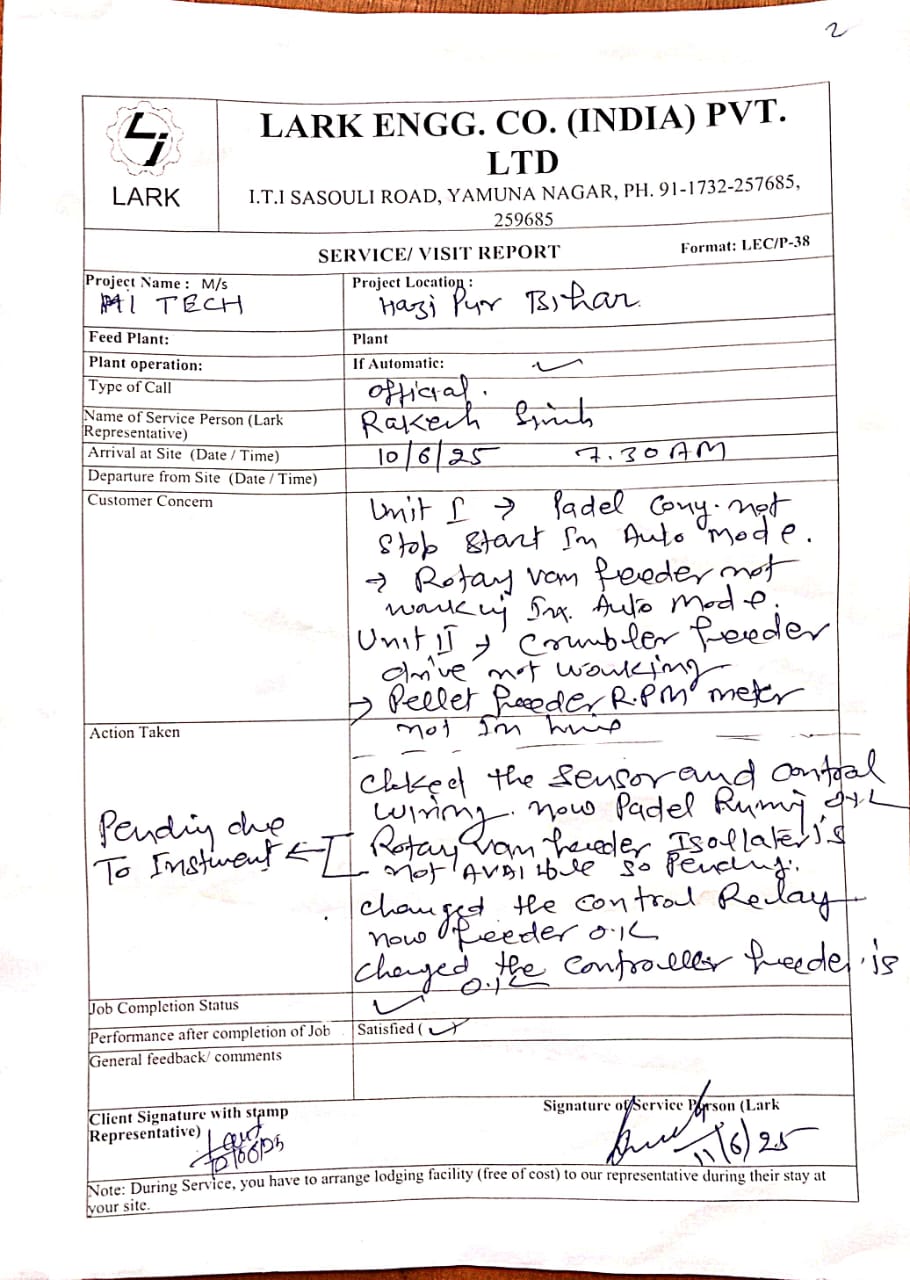 2
LARK
LARK ENGG. CO. (INDIA) PVT.
LTD
I.T.I SASOULI ROAD, YAMUNA NAGAR, PH. 91-1732-257685,
259685
SERVICE/ VISIT REPORT
Format: LEC/P-38
Project Name : M/s
HI TECH
Project Location :
Hazi Pur Bihar.
Feed Plant:
Plant
Plant operation:
If Automatic: ✓
Type of Call
official.
Name of Service Person (Lark
Representative)
Rakesh Sinh
Arrival at Site (Date / Time)
10/6/25 7.30 AM
Departure from Site (Date / Time)
Customer Concern
Unit I → Padel Conv. not
Stop Start In Auto Mode.
→ Rotay van feeder not
working In Auto Mode.
Unit II → Crumbler feeder
drive not working
→ Pellet feeder R.P.M meter
not In
Action Taken
Chked the Sensor and Control
wiring. now Padel Runing O.K
Rotay van feeder Isollater is
not AVAIible so Pending.
Pending due
To Instument ←
Changed the Control Relay
now feeder O.K
Changed the Controller feeder is
O.K
Job Completion Status
✓
Performance after completion of Job
Satisfied ( ✓ )
General feedback/ comments
Client Signature with stamp
Representative)
Signature of Service Person (Lark
11/6/25
Note: During Service, you have to arrange lodging facility (free of cost) to our representative during their stay at
your site.